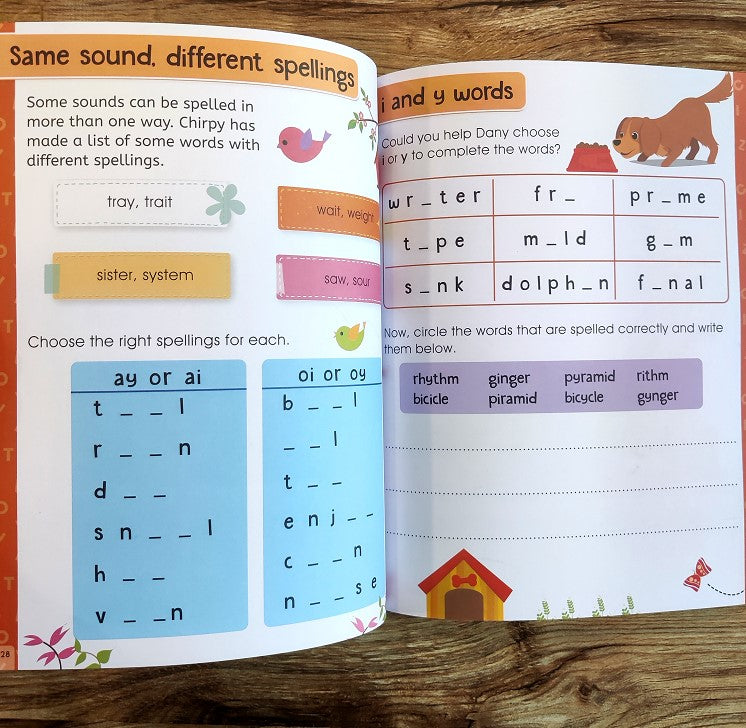 Same sound, different spellings
Some sounds can be spelled in
more than one way. Chirpy has
made a list of some words with
different spellings.
tray, trait
wait, weight
sister, system
saw, sour
Choose the right spellings for each.
ay or ai
t _ _ l
r _ _ n
d _ _
s n _ _ l
h _ _
v _ _ n
oi or oy
b _ _ l
_ _ l
t _ _
e n j _ _
c _ _ n
n _ _ s e
28
i and y words
Could you help Dany choose
i or y to complete the words?
w r _ t e r f r _ p r _ m e
t _ p e m _ l d g _ m
s _ n k d o l p h _ n f _ n a l
Now, circle the words that are spelled correctly and write
them below.
rhythm ginger pyramid rithm
bicicle piramid bicycle gynger